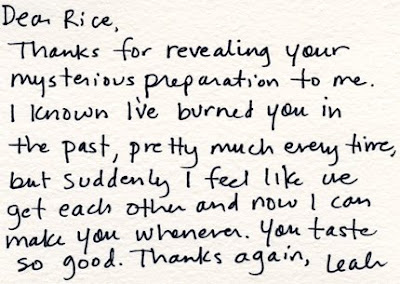 Dear Rice,
Thanks for revealing your
mysterious preparation to me.
I known I've burned you in
the past, pretty much every time,
but suddenly I feel like we
get each other and now I can
make you whenever. You taste
so good. Thanks again, Leah